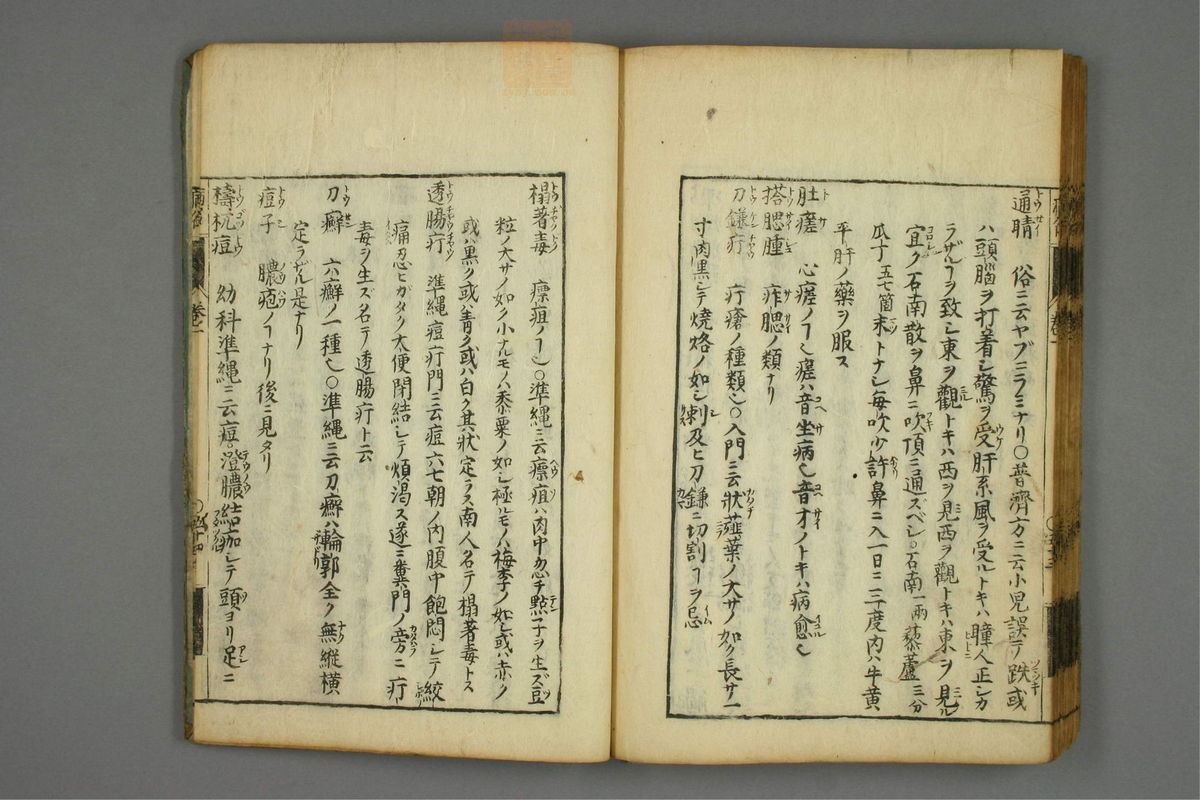 通睛 俗ニ云ヤブニラミナリ○普濟方ニ云小兒誤テ跌或
ハ頭腦ヲ打着シ驚ヲ受肝系風ヲ受ルトキハ瞳人正シカ
ラザルヿヲ致シ東ヲ觀トキハ西ヲ見西ヲ觀トキハ東ヲ見ル
宜ク石南散ヲ鼻ニ吹頂ニ通ズベシ○石南一兩藜蘆三分
瓜丁五七箇末トナシ毎吹少許鼻ニ入一日ニ三度内ハ牛黄
平肝ノ藥ヲ服ス
肚瘥 心瘥ノヿ也瘥ハ音坐病也音才ノトキハ病愈也
搭腮腫 痄腮ノ類ナリ
刀鎌疔 疔瘡ノ種類也○入門ニ云狀薤葉ノ大サノ如ク長サ一
寸肉黒シテ燒烙ノ如シ刺及ヒ刀鎌ニ切割ヿヲ忌
榻著毒 瘭疽ノヿ也○準繩ニ云瘭疽ハ肉中忽チ點子ヲ生ズ豆
粒ノ大サノ如ク小ナルモノハ黍粟ノ如シ極ルモノハ梅李ノ如シ或ハ赤ク
或ハ黒ク或ハ青ク或ハ白ク其狀定ラス南人名テ榻著毒トス
透腸疔 準繩痘疔門ニ云痘六七朝ノ内腹中飽悶シテ絞
痛忍ヒガタク大便閉結シテ煩渇ス遂ニ糞門ノ旁ニ疔
毒ヲ生ズ名テ透腸疔ト云
刀癬 六癬ノ一種也○準繩ニ云刀癬ハ輪郭全ク無縱横
定ラザル是ナリ
痘子 膿疱ノヿナリ後ニ見タリ
檮杌痘 幼科準繩ニ云痘澄膿結痂シテ頭ヨリ足ニ